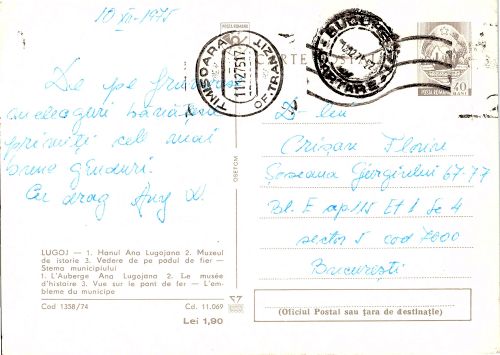 10 XII-1975
POSTA ROMANA
CARTE POSTALA
TIMISOARA
11.12.75.17
OF. TRANZIT
BUCURE
CARTARE
POSTA ROMANA
40
BANI
De pe frumoasele
meleaguri bănățene
primiți cele mai
bune gânduri.
Cu drag Any
D-lui
Crișan Florin
Șoseaua Giurgiului 67-77
Bl. E ap 115 Et 1 Sc 4
sector 5 cod 7000
București
OSEFCM
LUGOJ — 1. Hanul Ana Lugojana 2. Muzeul
de istorie 3. Vedere de pe podul de fier —
Stema municipiului
1. L'Auberge Ana Lugojana 2. Le musée
d'histoire 3. Vue sur le pont de fer — L'em-
bleme du municipe
Cod 1358/74
Cd. 11.069
Lei 1,90
(Oficiul Postal sau țara de destinație)